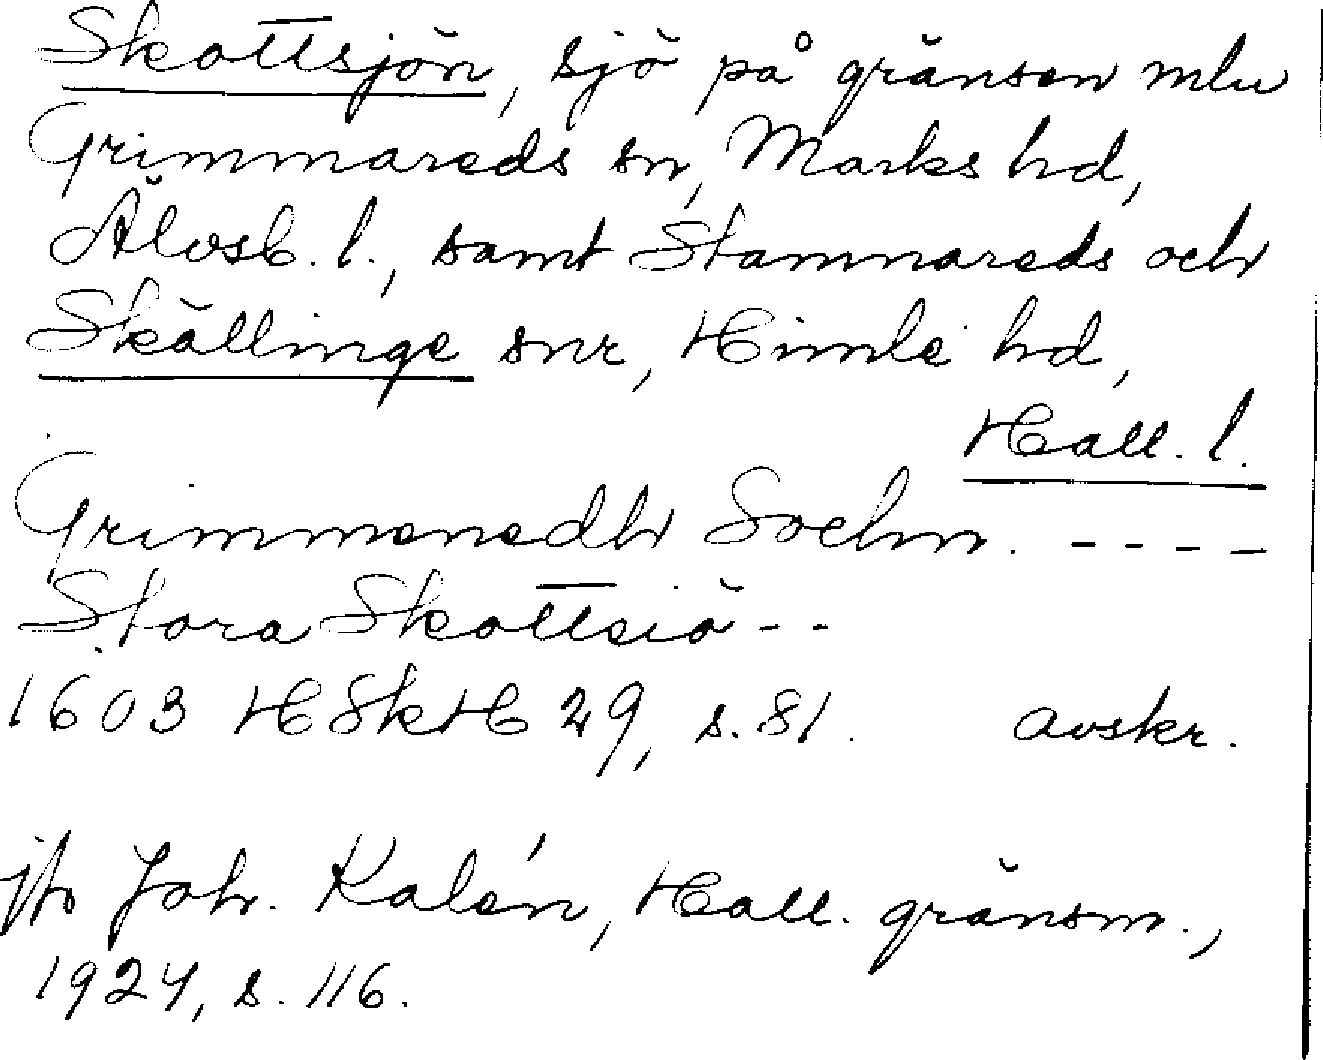 Skottsjön, sjö på gränsen mlu
Grimmareds sn, Marks hd,
Älvsb. l., samt Stamnareds och
Skällinge snr, Himle hd,
Hall. l.
Grimmenedh Sochn. ----
Stora Skottsiö --
1603 HSkH 29, s. 81. avskr.
jfr Joh. Kalén, Hall. gränsm.,
1924, s. 116.